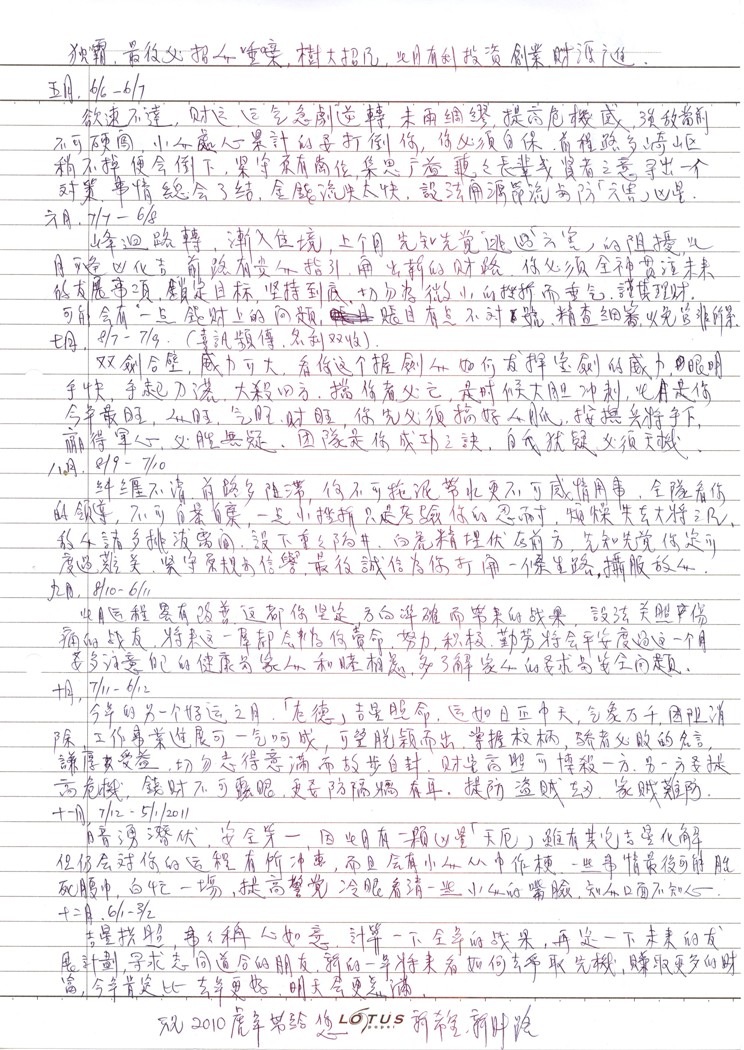 独霸，最後必招人唾棄，樹大招风，此月有利投資創業，財源广進．
五月，6/6－6/7
欲速不達，财运运气急劇逆轉，未雨綢繆，提高危機感，强敌當前
不可硬闯，小人處心累計的要打倒你，你必須自保．前程路多崎岖
稍不掉便会倒下，緊守原有崗位，集思广益聽之長輩或賢者之意寻出一个
对策．事情總会了結，金錢流失太快，設法開源節流与防「六害」凶星．
六月，7/7－6/8
峰迴路轉，漸入佳境，上个月先知先覚逃過「六害」的阻擾，此
月可逢凶化吉．前路有贵人指引，開出新的财路．你必須全神貫注未来
的发展事項．鎖定目标，坚持到底．切勿為微小的挫折而弃气．謹慎理财．
可能会有一点錢财上的问題，賬目有点不对號，精查細審以免是非所累
七月，8/7－7/9．（喜訊頻傳，名利双收）．
双劍合壁，威力可大，看你这个握劍人如何发揮宝劍的威力，眼明
手快，手起刀落，大殺四方．擋你者必亡，是时候大胆冲刺，此月是你
今年最旺，人旺，气旺，财旺，你先必須搞好人脈，按撫兵將手下，
贏得軍心，必胜無疑．团隊是你成功之訣，自我犹疑必須灭機．
八月，8/9－7/10
纠缠不清，前路多阻滯，你不可拖泥帶水更不可感情用事，全隊看你
的领導，不可自暴自棄，一点小挫折只是考驗你的忍耐，煩燥失去大将之风，
敌人諸多挑波离间，設下重重陷井，白亮精埋伏在前方，先知先覚你定可
度過難关．緊守原規与信譽，最後誠信為你打開一條生路，攝服敌人．
九月，8/10－6/11
此月运程略有改善，这都你坚定，方向準確而帶来的战果，設法关照中伤
痛的战友，将来这一群都会為你賣命．努力，积极，勤劳将会平安度过这一个月
要多注意自己的健康与家人和睦相處，多了解家人的尋求与安全问題．
十月，7/11－6/12
今年的另一个好运之月，「尨德」吉星照命，运如日正中天，气象万千，困阻消
除，工作事業進展可一气呵成，可望脱颖而出，掌握权柄，骄者必敗的名言，
謙虛受益，切勿志得意滿而故步自封，财星高照可博殺一方．另一方要提
高危機，錢財不可露眼，更要防隔牆有耳，提防盜贼去劫，家贼難防．
十一月，7/12－5/1/2011
暗湧潛伏，安全第一，因此月有一顆凶星「天厄」，雖有其它吉星化解
但仍会对你的运程有所冲击，而且会有小人从中作梗，一些事情最後可能胎
死腹中，白忙一場，提高警覚，冷眼看清一些小人的嘴臉，知人口面不知心．
十二月，6/1－3/2
吉星拱照，事事稱心如意．計算一下全年的战果，再定一下未来的发
展計劃，寻求志同道合的朋友，新的一年将来看如何去爭取先機，賺取更多的财
富，今年肯定比去年更好，明天会更美滿．
祝2010虎年帶給您 新希望，新财路
LOTUS